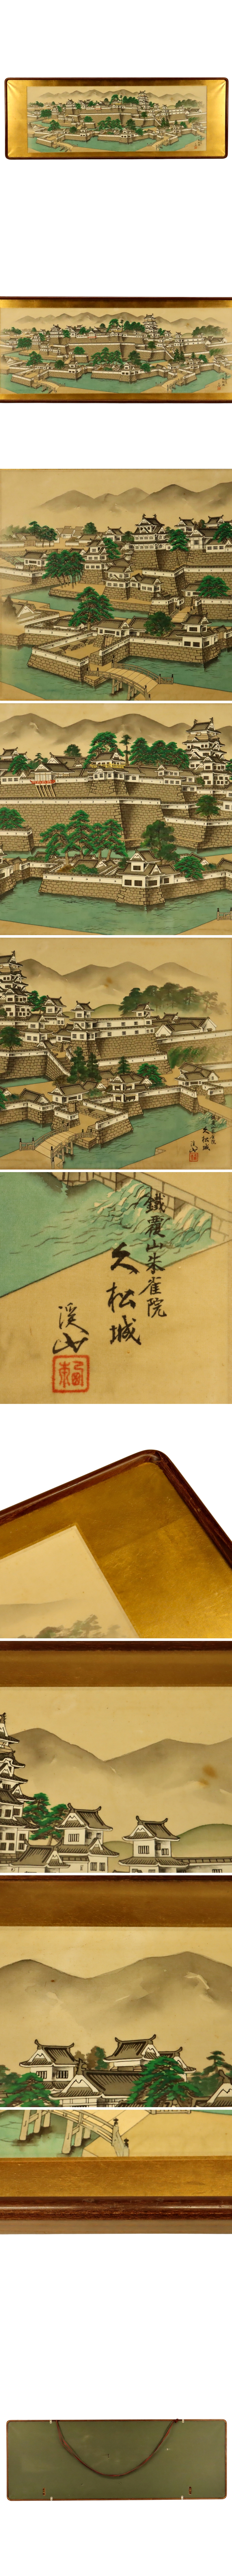 鐵覆山朱雀院
久松城
渓山